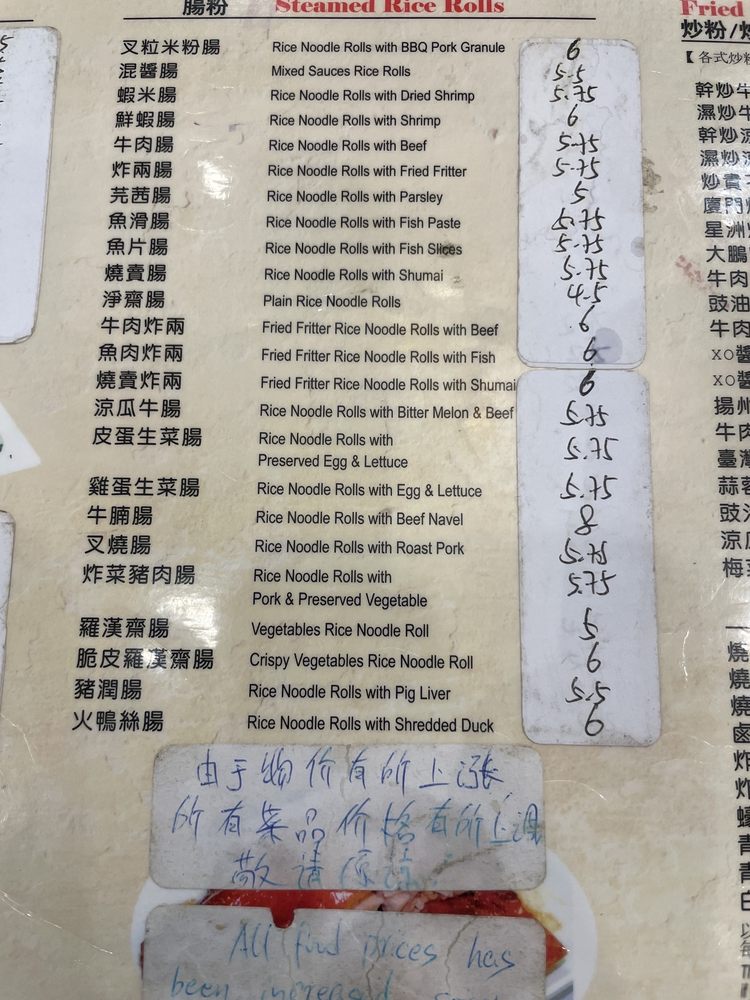 腸粉 Steamed Rice Rolls
叉粒米粉腸 Rice Noodle Rolls with BBQ Pork Granule 6
混醬腸 Mixed Sauces Rice Rolls 5.5
蝦米腸 Rice Noodle Rolls with Dried Shrimp 5.75
鮮蝦腸 Rice Noodle Rolls with Shrimp 6
牛肉腸 Rice Noodle Rolls with Beef 5.75
炸兩腸 Rice Noodle Rolls with Fried Fritter 5.75
芫茜腸 Rice Noodle Rolls with Parsley 5
魚滑腸 Rice Noodle Rolls with Fish Paste 5.75
魚片腸 Rice Noodle Rolls with Fish Slices 5.75
燒賣腸 Rice Noodle Rolls with Shumai 5.75
淨齋腸 Plain Rice Noodle Rolls 4.5
牛肉炸兩 Fried Fritter Rice Noodle Rolls with Beef 6
魚肉炸兩 Fried Fritter Rice Noodle Rolls with Fish 6
燒賣炸兩 Fried Fritter Rice Noodle Rolls with Shumai 6
涼瓜牛腸 Rice Noodle Rolls with Bitter Melon & Beef 5.75
皮蛋生菜腸 Rice Noodle Rolls with 5.75
Preserved Egg & Lettuce
雞蛋生菜腸 Rice Noodle Rolls with Egg & Lettuce 5.75
牛腩腸 Rice Noodle Rolls with Beef Navel 8
叉燒腸 Rice Noodle Rolls with Roast Pork 5.75
炸菜豬肉腸 Rice Noodle Rolls with 5.75
Pork & Preserved Vegetable
羅漢齋腸 Vegetables Rice Noodle Roll 5
脆皮羅漢齋腸 Crispy Vegetables Rice Noodle Roll 6
豬潤腸 Rice Noodle Rolls with Pig Liver 5.5
火鴨絲腸 Rice Noodle Rolls with Shredded Duck 6
由于物价有所上漲
所有菜品价格有所上调
敬請原谅
All food prices has
been increased
Fried
炒粉/
【各式炒粉
幹炒牛
濕炒牛
幹炒
濕炒
炒貴
廈門
星洲
大鵬
牛肉
豉油
牛肉
xo醬
xo醬
揚州
牛肉
臺灣
蒜蓉
豉
涼瓜
梅菜
燒
燒
燒
鹵
炸
炸
蠔
青
青
白